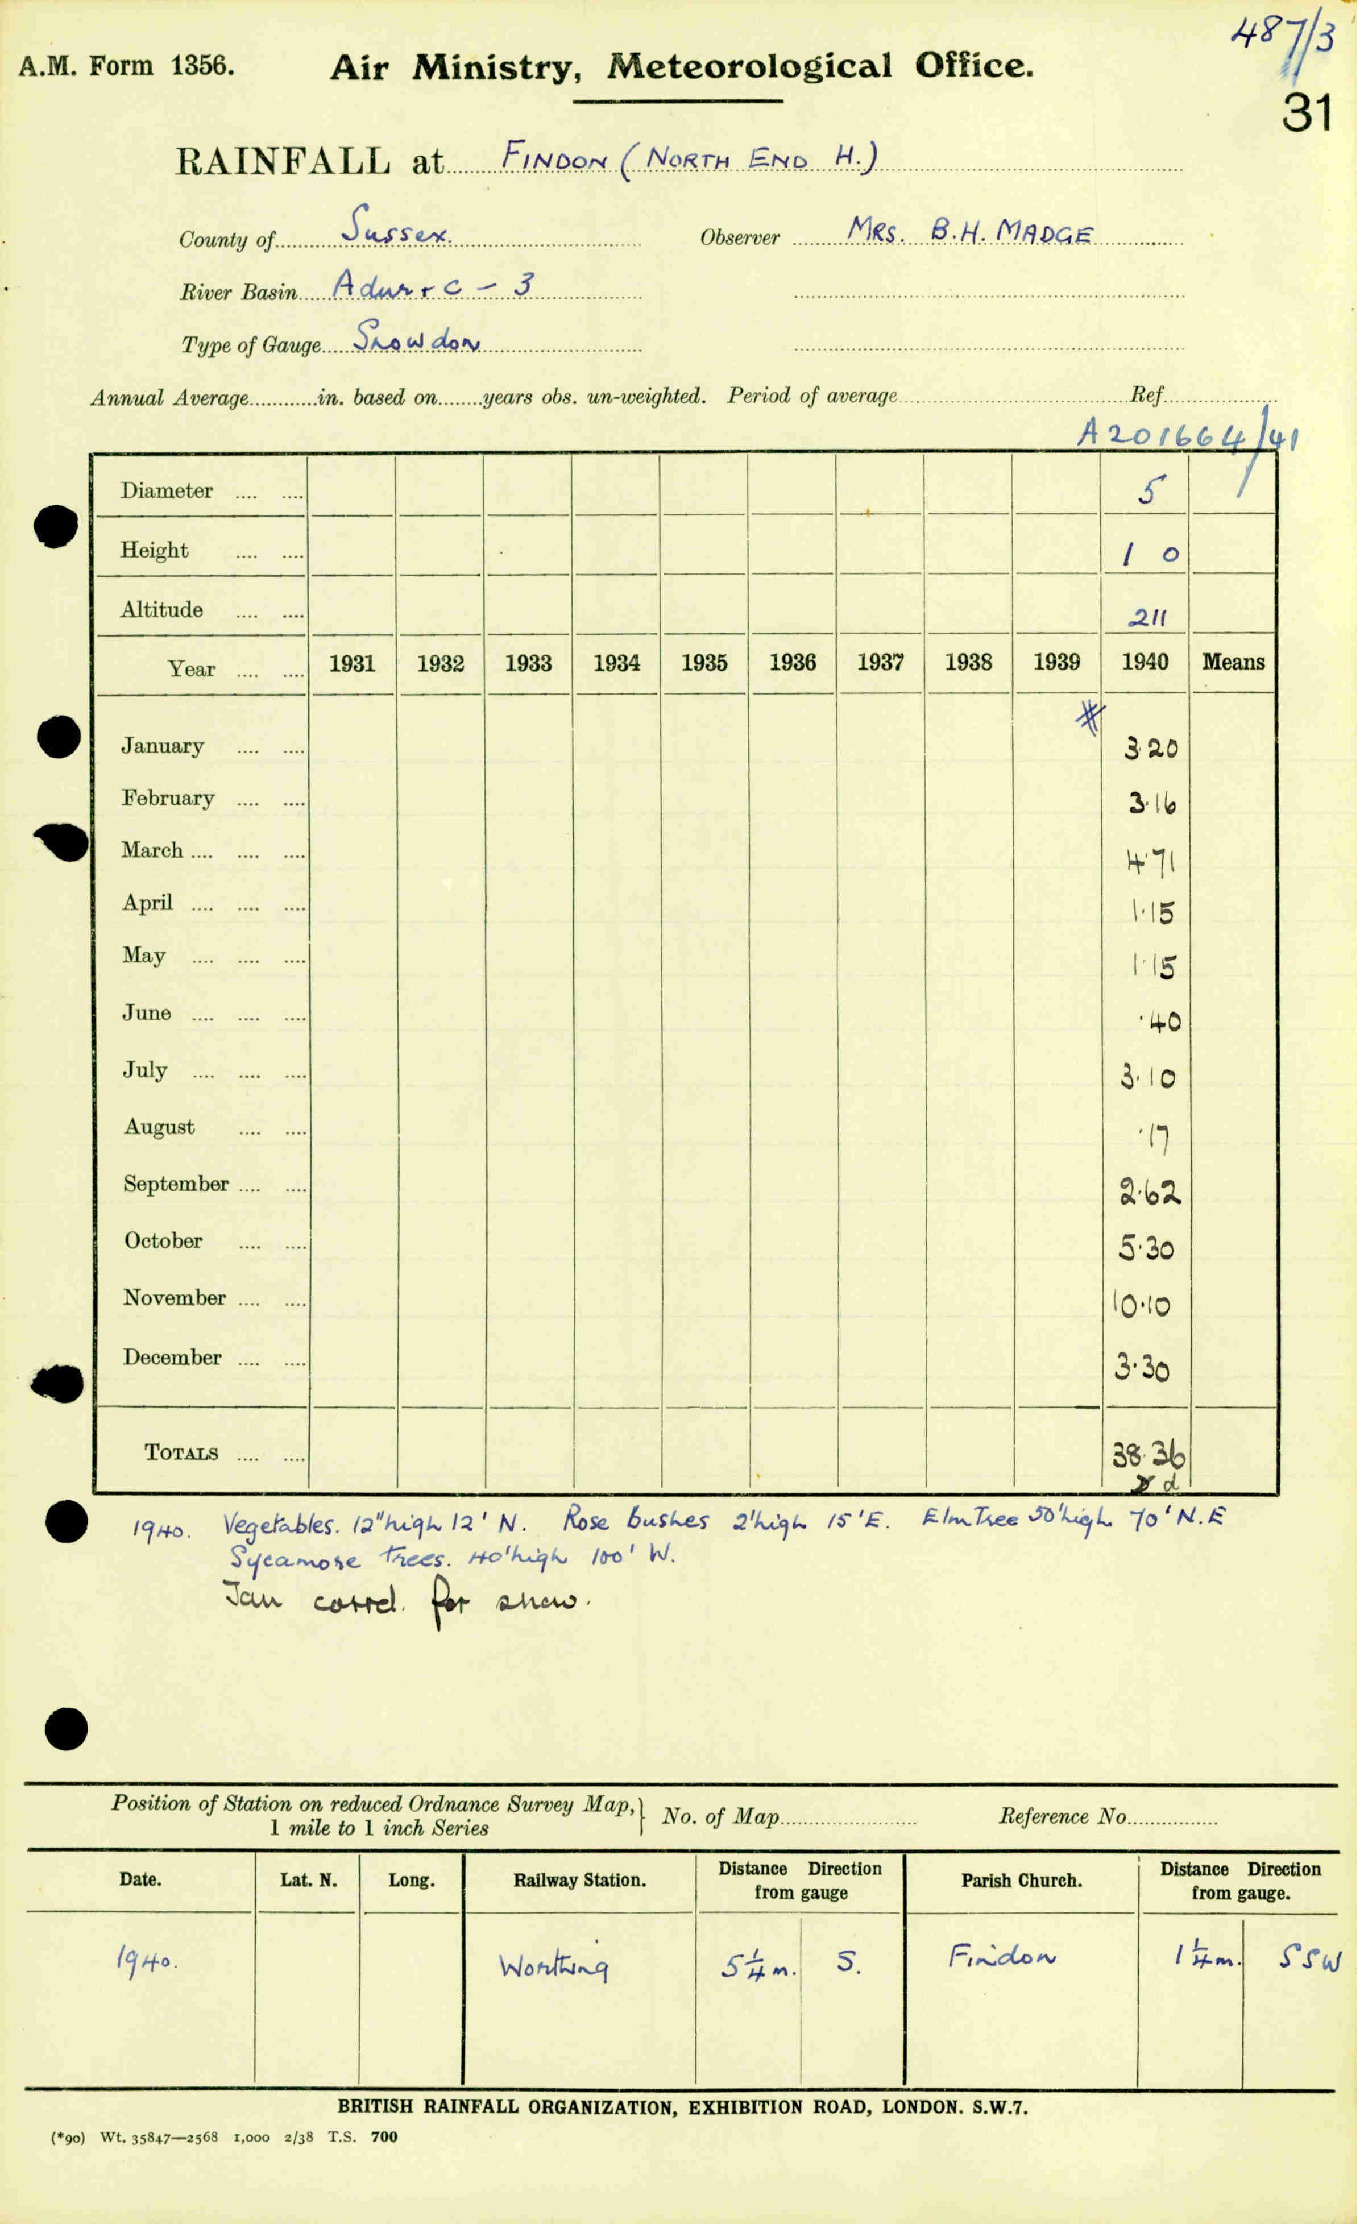 487/3
A.M. Form 1356. Air Ministry, Meteorological Office.
31
RAINFALL at FINDON (NORTH END H.)
County of Sussex. Observer MRS. B.H. MADGE
River Basin Adur + C - 3
Type of Gauge Snowdon
Annual Average............in. based on........years obs. un-weighted. Period of average Ref.
A201664/41
Diameter .... .... 5
Height .... .... 1 0
Altitude .... .... 211
Year .... .... 1931 1932 1933 1934 1935 1936 1937 1938 1939 1940 Means
January .... .... 3.20
February .... .... 3.16
March .... .... .... 4.71
April .... .... .... 1.15
May .... .... .... 1.15
June .... .... .... .40
July .... .... .... 3.10
August .... .... .17
September .... .... 2.62
October .... .... 5.30
November .... .... 10.10
December .... .... 3.30
TOTALS .... .... 38.36
d
1940. Vegetables. 12" high 12' N. Rose bushes 2' high 15' E. Elm Tree 50' high 70' N.E
Sycamore trees. 40' high 100' W.
Jan corrd. for snow.
Position of Station on reduced Ordnance Survey Map, } No. of Map Reference No.
1 mile to 1 inch Series
Date. Lat. N. Long. Railway Station. Distance Direction from gauge Parish Church. Distance Direction from gauge.
1940. Worthing 5¼ m. S. Findon 1¼ m. SSW
BRITISH RAINFALL ORGANIZATION, EXHIBITION ROAD, LONDON. S.W.7.
(*90) Wt. 35847—2568 1,000 2/38 T.S. 700